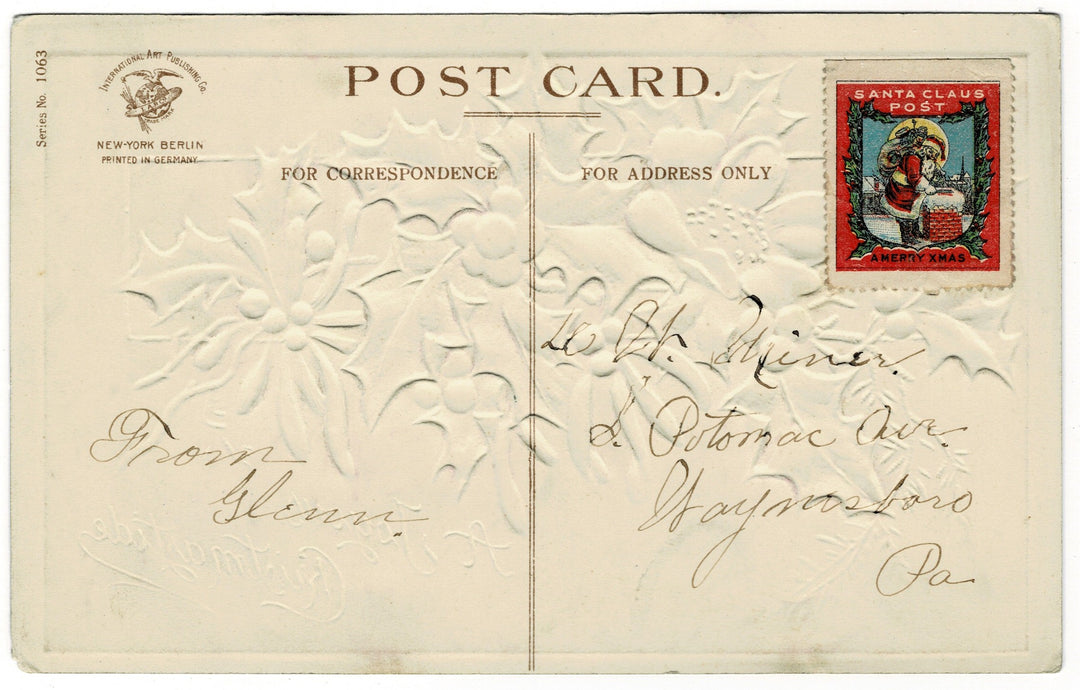 Series No. 1063
INTERNATIONAL ART PUBLISHING CO.
NEW-YORK BERLIN
PRINTED IN GERMANY
POST CARD.
FOR CORRESPONDENCE
FOR ADDRESS ONLY
SANTA CLAUS
POST
A MERRY XMAS
Miner.
S. Potomac Ave.
Waynesboro
Pa
From
Glenn.
Christmastide